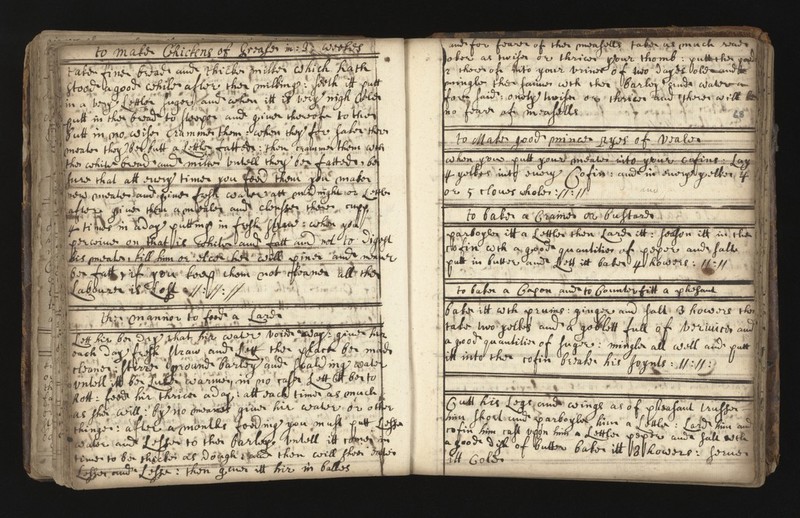 to make Chickens of Grease in: 12 weekes
take fine bread and thicke milke which hath
stood a good while after then milking: seeth itt putt
in a very Little suger and when itt is very nigh Colde
putt in the bread to steepe and give thereof to them
butt in no wise Cramme them: when they for sake there
meate they bee butt a Little fatted: then cramme them with
the white bread and milke untill they bee fatted: be
sure that att every time you feed them you make
new meate and give fresh water att midnight or Little
after give them a meale and clense there cupp
4 times in a day putting in fresh straw: when you
perceive on that is white and fatt and not to digest
his meate: kill him or else hee will pine and never
bee fatt: if you keep them not cleane all the
Labour is Lost //://://
The mannor to feede a Larke
Lett her be dry what his water voide away: give hir
each day fresh straw and Lett the place bee made
cleane: stirre ground barley and scalding water
untill itt bee Luke warme, in no case Lett itt bee to
hott: feed hir thrice a day: att each time as much
as shee will: by no meanes give hir water or other
thinge: after a months feeding you must putt Lesse
water and Lesse to the barley untill itt come in
time to bee thicke as dough: and then will shee eate
Lesse and Lesse: then give itt hir in balles
and for feare of the measells take as much read
oker as twise or thrice your thomb: putt the
2 there of into your urine of two dayes old and
mingle the same with the barley and water a
fore said: onely twise or thrice and there will be
no feare of measells
to Make good mince pyes of Veale
when you putt your meate into your cofins: Lay
4 yelkes into every Cofin: and in every yelke 4
or 5 cloves whole: //://
to bake a Crane or bustard
parboyle itt a Little then Lard itt: season itt in the
cofin with a good quantitie of peper and salt
putt in butter and Lett itt bake 4 howers: //://
to bake a Capon and to Counterfitt a phesant
bake itt with pruins: ginger and salt 3 howers then
take two yelkes and a goblett full of veriuice and
a good quantitie of suger: mingle all well and putt
itt into the cofin breake his Joynts: //://:
Cutt his Legs and wings as of phesant trusse
him short and parboyle him a Little: Lard him and
cofin him cast upon him a Little peper and salt with
a good dish of butter bake itt 3 howers: serve
itt Cold